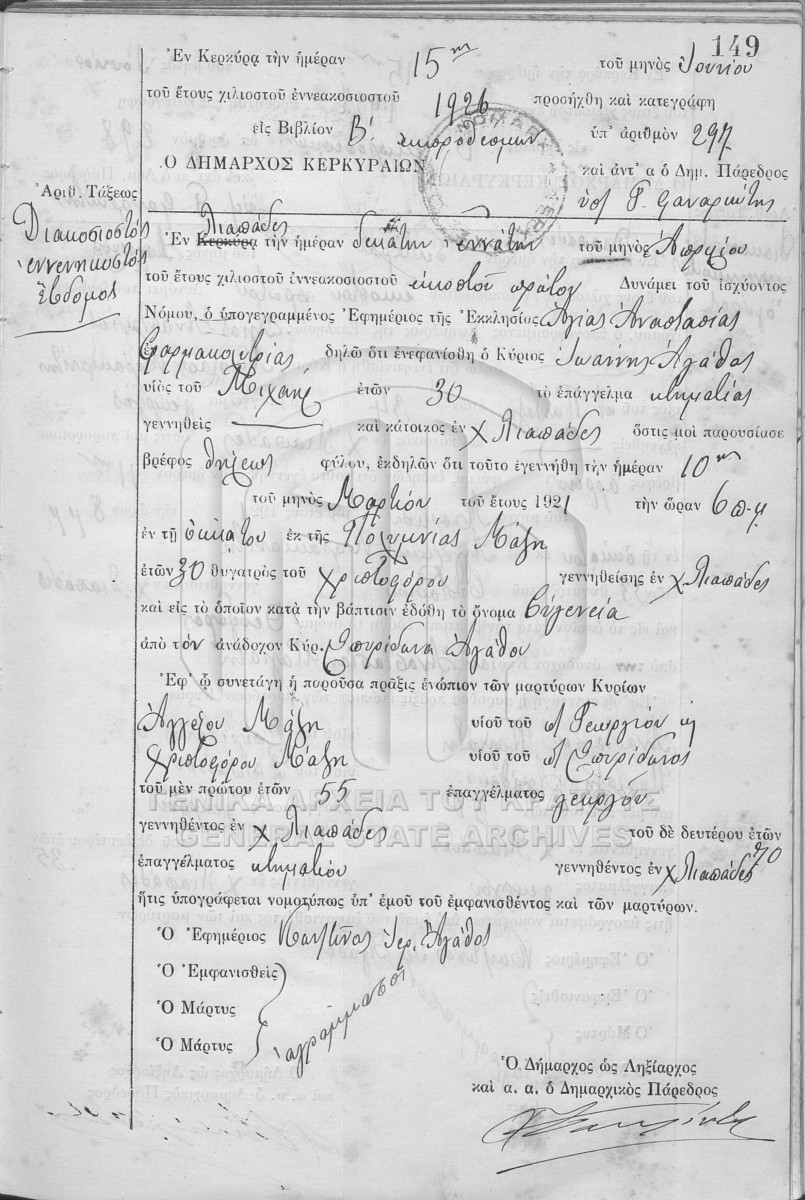 149
Ἐν Κερκύρᾳ τὴν ἡμέραν 15ην τοῦ μηνὸς Ἰουνίου
τοῦ ἔτους χιλιοστοῦ ἐννεακοσιοστοῦ 1926 προσήχθη καὶ κατεγράφη
εἰς Βιβλίον Β' ἐκπροθέσμων ὑπ' ἀριθμὸν 297
Ὁ ΔΗΜΑΡΧΟΣ ΚΕΡΚΥΡΑΙΩΝ καὶ ἀντ' α ὁ Δημ. Πάρεδρος
Ἀριθ. Τάξεως
Διακοσιοστὸς
ἐννενηκοστὸς
ἕβδομος
Λιαπάδες
Ἐν Κερκύρᾳ τὴν ἡμέραν δεκάτην ἐννάτην τοῦ μηνὸς Ἀπριλίου
τοῦ ἔτους χιλιοστοῦ ἐννεακοσιοστοῦ εἰκοστοῦ πρώτου Δυνάμει τοῦ ἰσχύοντος
Νόμου, ὁ ὑπογεγραμμένος Ἐφημέριος τῆς Ἐκκλησίας Ἁγίας Ἀναστασίας
Φαρμακολυτρίας δηλῶ ὅτι ἐνεφανίσθη ὁ Κύριος Ἰωάννης Ἀγάθος
υἱὸς τοῦ Μιχαὴλ ἐτῶν 30 τὸ ἐπάγγελμα κτηματίας
γεννηθεὶς καὶ κάτοικος ἐν χ Λιαπάδες ὅστις μοὶ παρουσίασε
βρέφος θήλεως φύλου, ἐκδηλῶν ὅτι τοῦτο ἐγεννήθη τὴν ἡμέραν 10ην
τοῦ μηνὸς Μαρτίου τοῦ ἔτους 1921 τὴν ὥραν 6 π.μ
ἐν τῇ οἰκίᾳ του ἐκ τῆς Πολυμνίας Μάζη
ἐτῶν 30 θυγατρὸς τοῦ Χριστοφόρου γεννηθείσης ἐν χ Λιαπάδες
καὶ εἰς τὸ ὁποῖον κατὰ τὴν βάπτισιν ἐδόθη τὸ ὄνομα Εὐγενεία
ἀπὸ τὸν ἀνάδοχον Κύρ. Σπυρίδωνα Ἀγάθου
Ἐφ' ᾧ συνετάγη ἡ παροῦσα πρᾶξις ἐνώπιον τῶν μαρτύρων Κυρίων
Ἀγγέλου Μάζη υἱοῦ τοῦ Γεωργίου
Χριστοφόρου Μάζη υἱοῦ τοῦ Σπυρίδωνος
τοῦ μὲν πρώτου ἐτῶν 55 ἐπαγγέλματος γεωργοῦ
ΓΕΝΙΚΑ ΑΡΧΕΙΑ ΤΟΥ ΚΡΑΤΟΥΣ
γεννηθέντος ἐν χ Λιαπάδες τοῦ δὲ δευτέρου ἐτῶν 70
GENERAL STATE ARCHIVES
ἐπαγγέλματος κτηματίου γεννηθέντος ἐν χ Λιαπάδες
ἥτις ὑπογράφεται νομοτύπως ὑπ' ἐμοῦ τοῦ ἐμφανισθέντος καὶ τῶν μαρτύρων.
Ὁ Ἐφημέριος Ἱερ. Ἀγάθος
Ὁ Ἐμφανισθεὶς
Ὁ Μάρτυς
Ὁ Μάρτυς
ἀγράμματοι
Ὁ Δήμαρχος ὡς Ληξίαρχος
καὶ α. α. ὁ Δημαρχικὸς Πάρεδρος